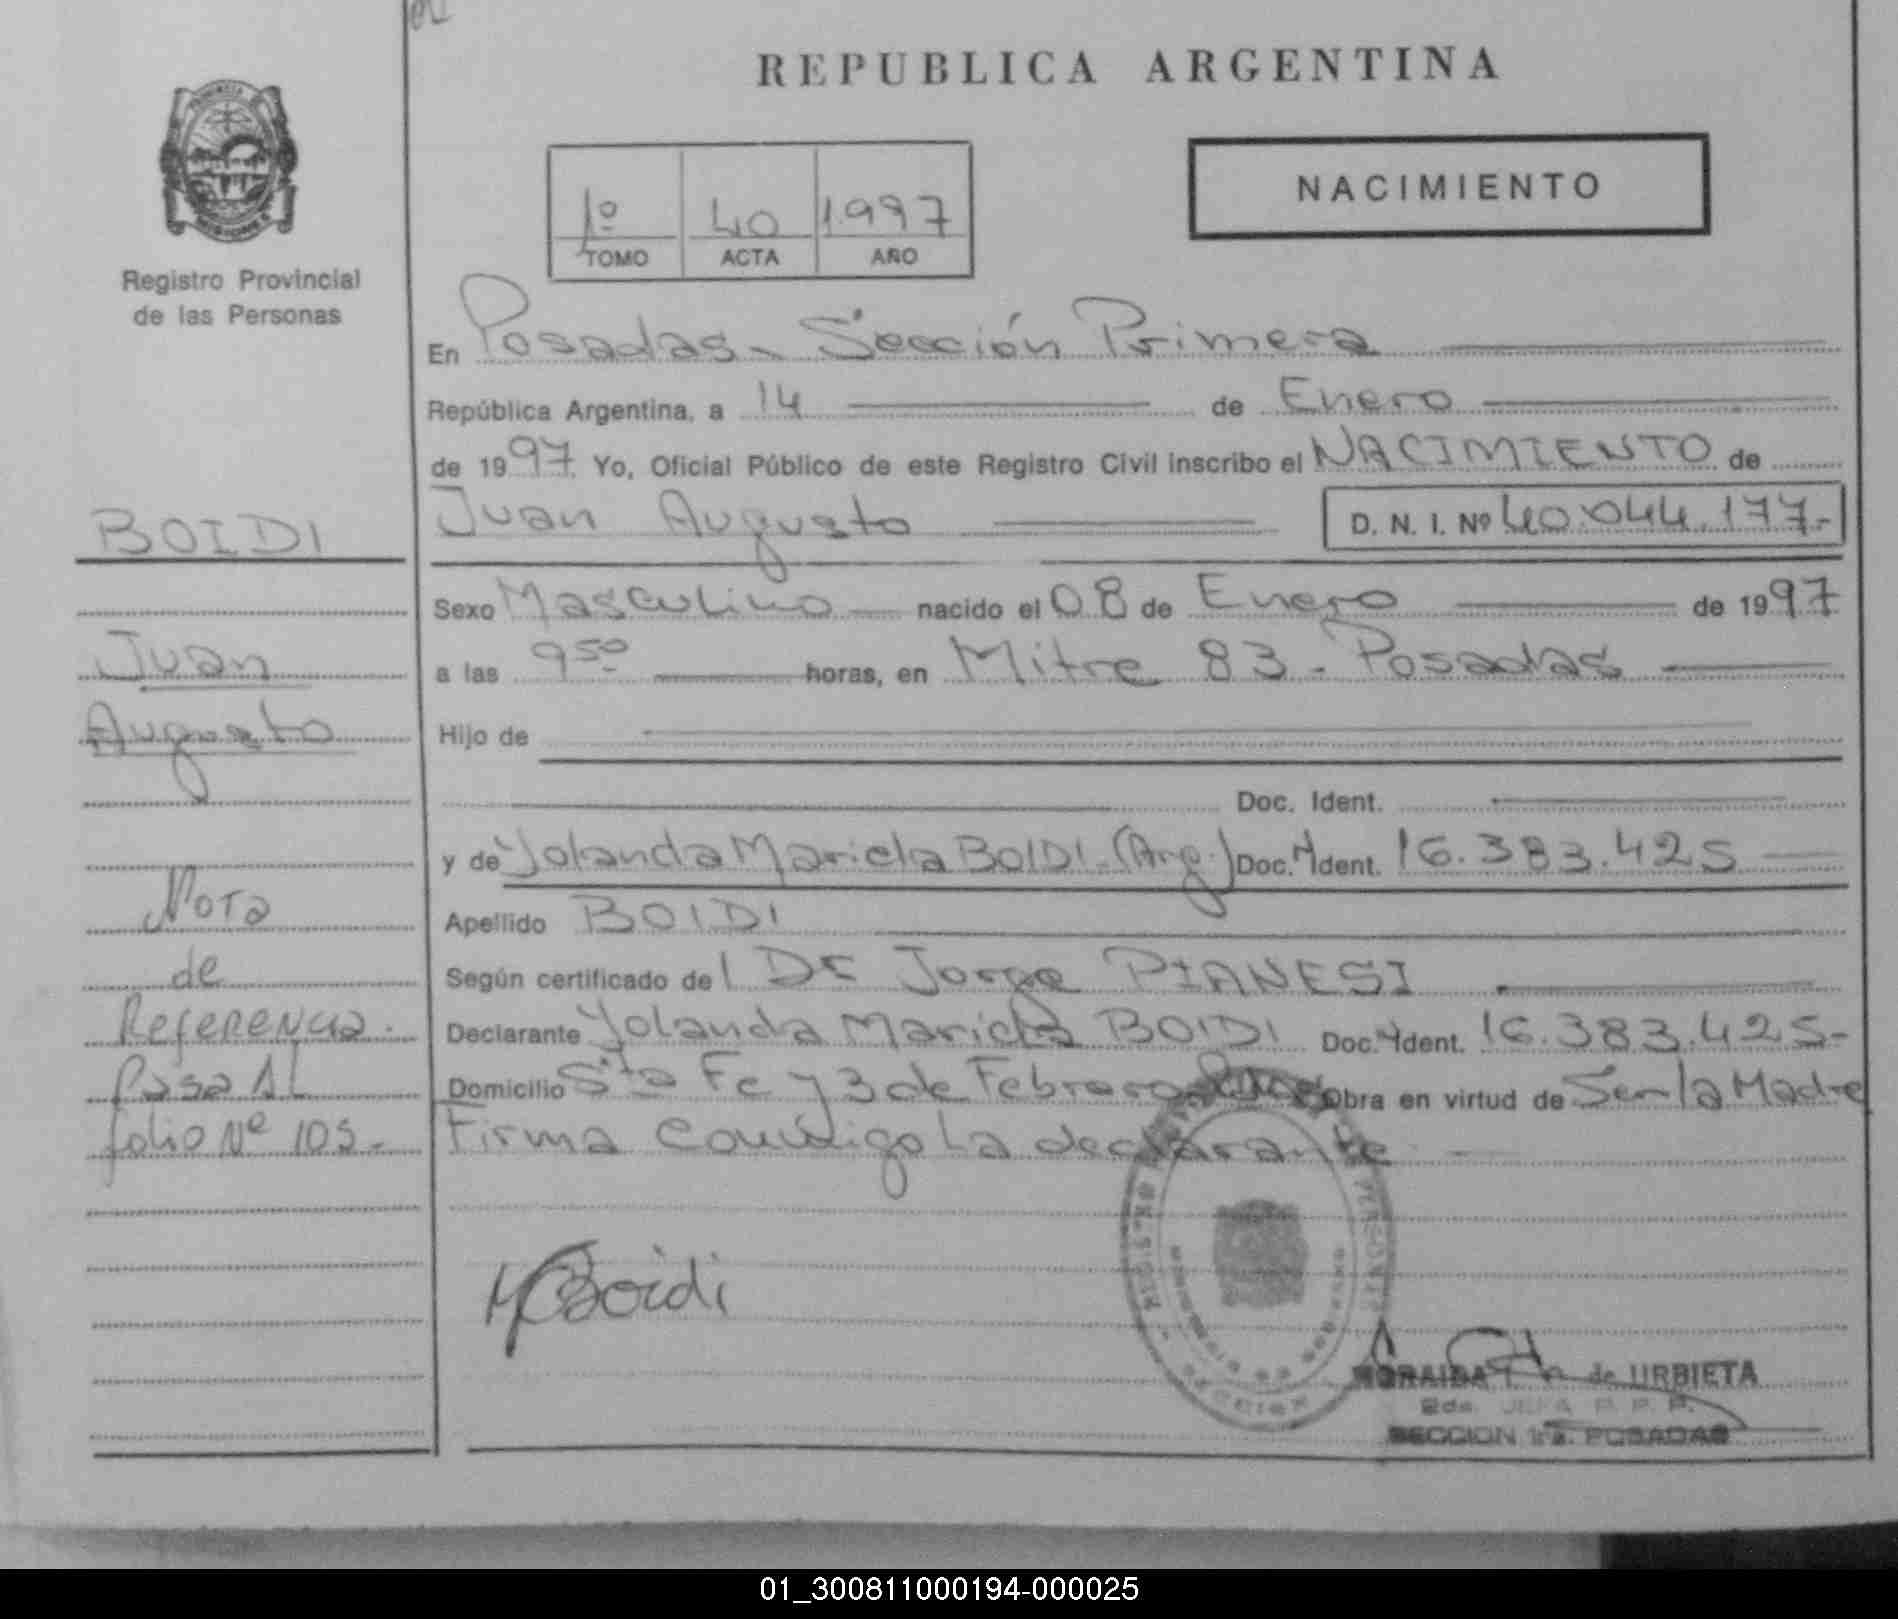 REPUBLICA ARGENTINA
NACIMIENTO
1º 40 1997
TOMO ACTA AÑO
Registro Provincial
de las Personas
En Posadas - Sección Primera
República Argentina, a 14 de Enero
de 1997. Yo, Oficial Público de este Registro Civil inscribo el NACIMIENTO de
Juan Augusto D. N. I. Nº 40.044.177-
Sexo Masculino nacido el 08 de Enero de 1997
a las 950 horas, en Mitre 83 - Posadas
Hijo de
Doc. Ident.
y de Yolanda Mariela BOIDI (Arg.) Doc. Ident. 16.383.425
Apellido BOIDI
Según certificado del Dr Jorge PIANESI
Declarante Yolanda Mariela BOIDI Doc. Ident. 16.383.425-
Domicilio Sta Fe y 3 de Febrero Obra en virtud de Ser la Madre
Firma conmigo la declarante
BOIDI
Juan
Augusto
Nota
de
Referencia.
Pasa Al
folio Nº 105.-
Boidi
de URBIETA
2da. JEFA R. P. P.
SECCION 1ra. POSADAS
01_300811000194-000025